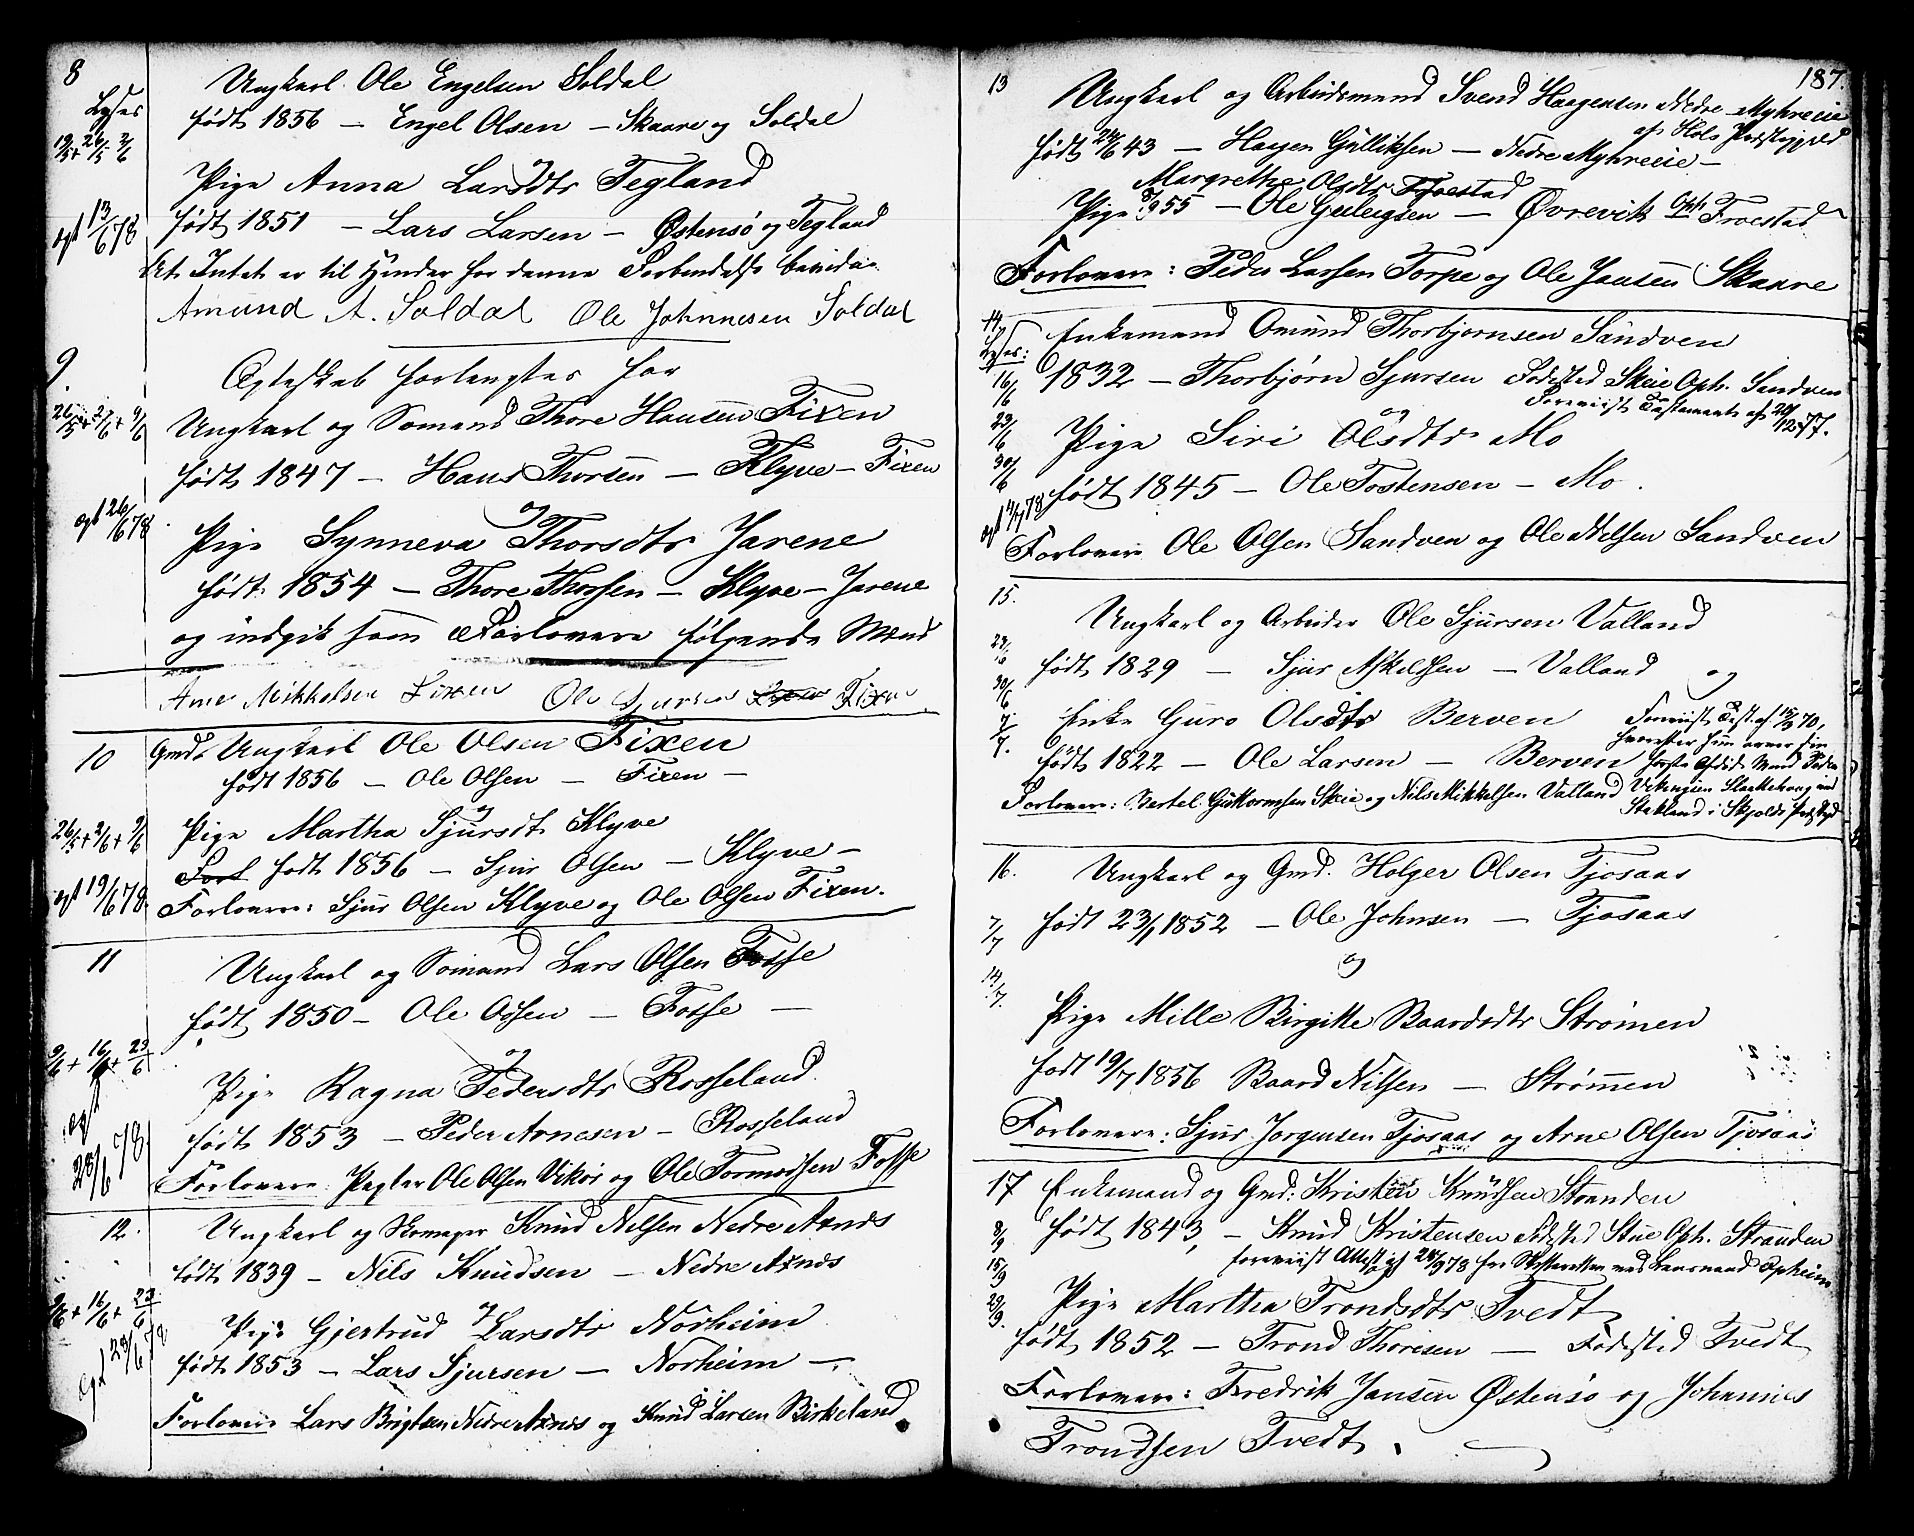 8
Lyses
19/5 + 26/5 2/6
Ungkarl Ole Engelsen Soldal
født 1856 — Engel Olsen — Skaare og Soldal
og
Pige Anna Larsdtr Tegland
født 1851 — Lars Larsen — Østensø og Tegland
ægt 13/6 78
At Intet er til Hinder for denne Forbindelse bevidne
Amund A. Soldal Ole Johannesen Soldal
9.
Ægteskab forlangtes for
26/5 + 2/6 + 9/6
Ungkarl og Sømand Thore Hansen Fixen
født 1847 — Hans Thorsen — Klyve — Fixen
og
ægt 26/6 78.
Pige Synneva Thorsdtr Jarene
født 1854 — Thore Thorsen — Klyve — Jarene
og indgik som Forlovere følgende Mænd
Arne Mikkelsen Fixen Ole Sjursen Fixen
10
Gmd. Ungkarl Ole Olsen Fixen
født 1856 — Ole Olsen — Fixen —
og
26/5 + 2/6 + 9/6
Pige Martha Sjursdtr Klyve
Forl født 1856 — Sjur Olsen — Klyve —
ægt 19/6 78.
Forlovere: Sjur Olsen Klyve og Ole Olsen Fixen.
11
Ungkarl og Sømand Lars Olsen Fosse
født 1850 — Ole Olsen — Fosse —
9/6 + 16/6 + 23/6
og
Pige Ragna Pedersdtr Rosseland
født 1853 — Peder Arnesen — Rosseland
ægt 28/6 78
Forlovere: Pagter Ole Olsen Vikør og Ole Tormodsen Fosse
12.
Ungkarl og Skomager Knud Nilsen Nedre Axnes
født 1839 — Nils Knudsen — Nedre Axnes
9/6 + 16/6 + 23/6
og
Pige Gjertrud Larsdtr Norheim
født 1853 — Lars Sjursen — Norheim —
ægt 28/6 78
Forlovere Lars Brigtsen Nedre Axnes og Knud Larsen Birkeland
187.
13
Ungkarl og Arbeidsmand Svend Haagensen Nedre Myhreeie
af Hols Præstegjeld
født 24/6 43 — Haagen Gulliksen — Nedre Myhreeie —
og
Margrethe Olsdtr Froestad
Pige 1855 — Ole — Øvrevik Oph. Froestad
Forlovere: Peder Larsen Torpe og Ole Jansen Skaare
14
Lyses:
Enkemand Omund Thorbjørnsen Sandven
16/6
1832 — Thorbjørn Sjursen Fødested Skeie Oph. Sandven
Foreviist Testamente af 29/12 77.
og
23/6
Pige Siri Olsdtr Mo
30/6
født 1845 — Ole Tostensen — Mo.
ægt 4/7 78
Forlovere Ole Olsen Sandven og Ole Nilsen Sandven
15.
Ungkarl og Arbeider Ole Sjursen Valland
23/6
født 1829 — Sjur Askeldsen — Valland og
30/6
Enke Guro Olsdtr Berven
Foreviist Test. af 15/9 70,
hvorefter hun arver sin
7/7.
født 1822 — Ole Larsen — Berven
første afdøde Mand Peder
Forlovere: Bertel Guttormsen Skeie og Nils Mikkelsen Valland
Stakland i Skjolds Præstgjd
16.
Ungkarl og Gmd. Holger Olsen Tjosaas
7/7
født 23/1 1852 — Ole Johnsen — Tjosaas
og
14/7.
Pige Mille Birgitte Baardsdtr Strømen
født 19/7 1856 Baard Nilsen — Strømen
Forlovere: Sjur Jørgensen Tjosaas og Arne Olsen Tjosaas
17
Enkemand og Gmd: Kristen Knudsen Stranden
8/9
født 1843, — Knud Kristensen Fødested Stue Oph. Stranden
15/9
foreviist Attest af 24/9 78 fra Skifteretten ved Lensmand Opheim
og
29/9.
Pige Martha Trondsdtr Tvedt
født 1852 — Trond Thoresen — Fødested Tvedt
Forlovere: Fredrik Jansen Østensø og Johannes
Trondsen Tvedt.